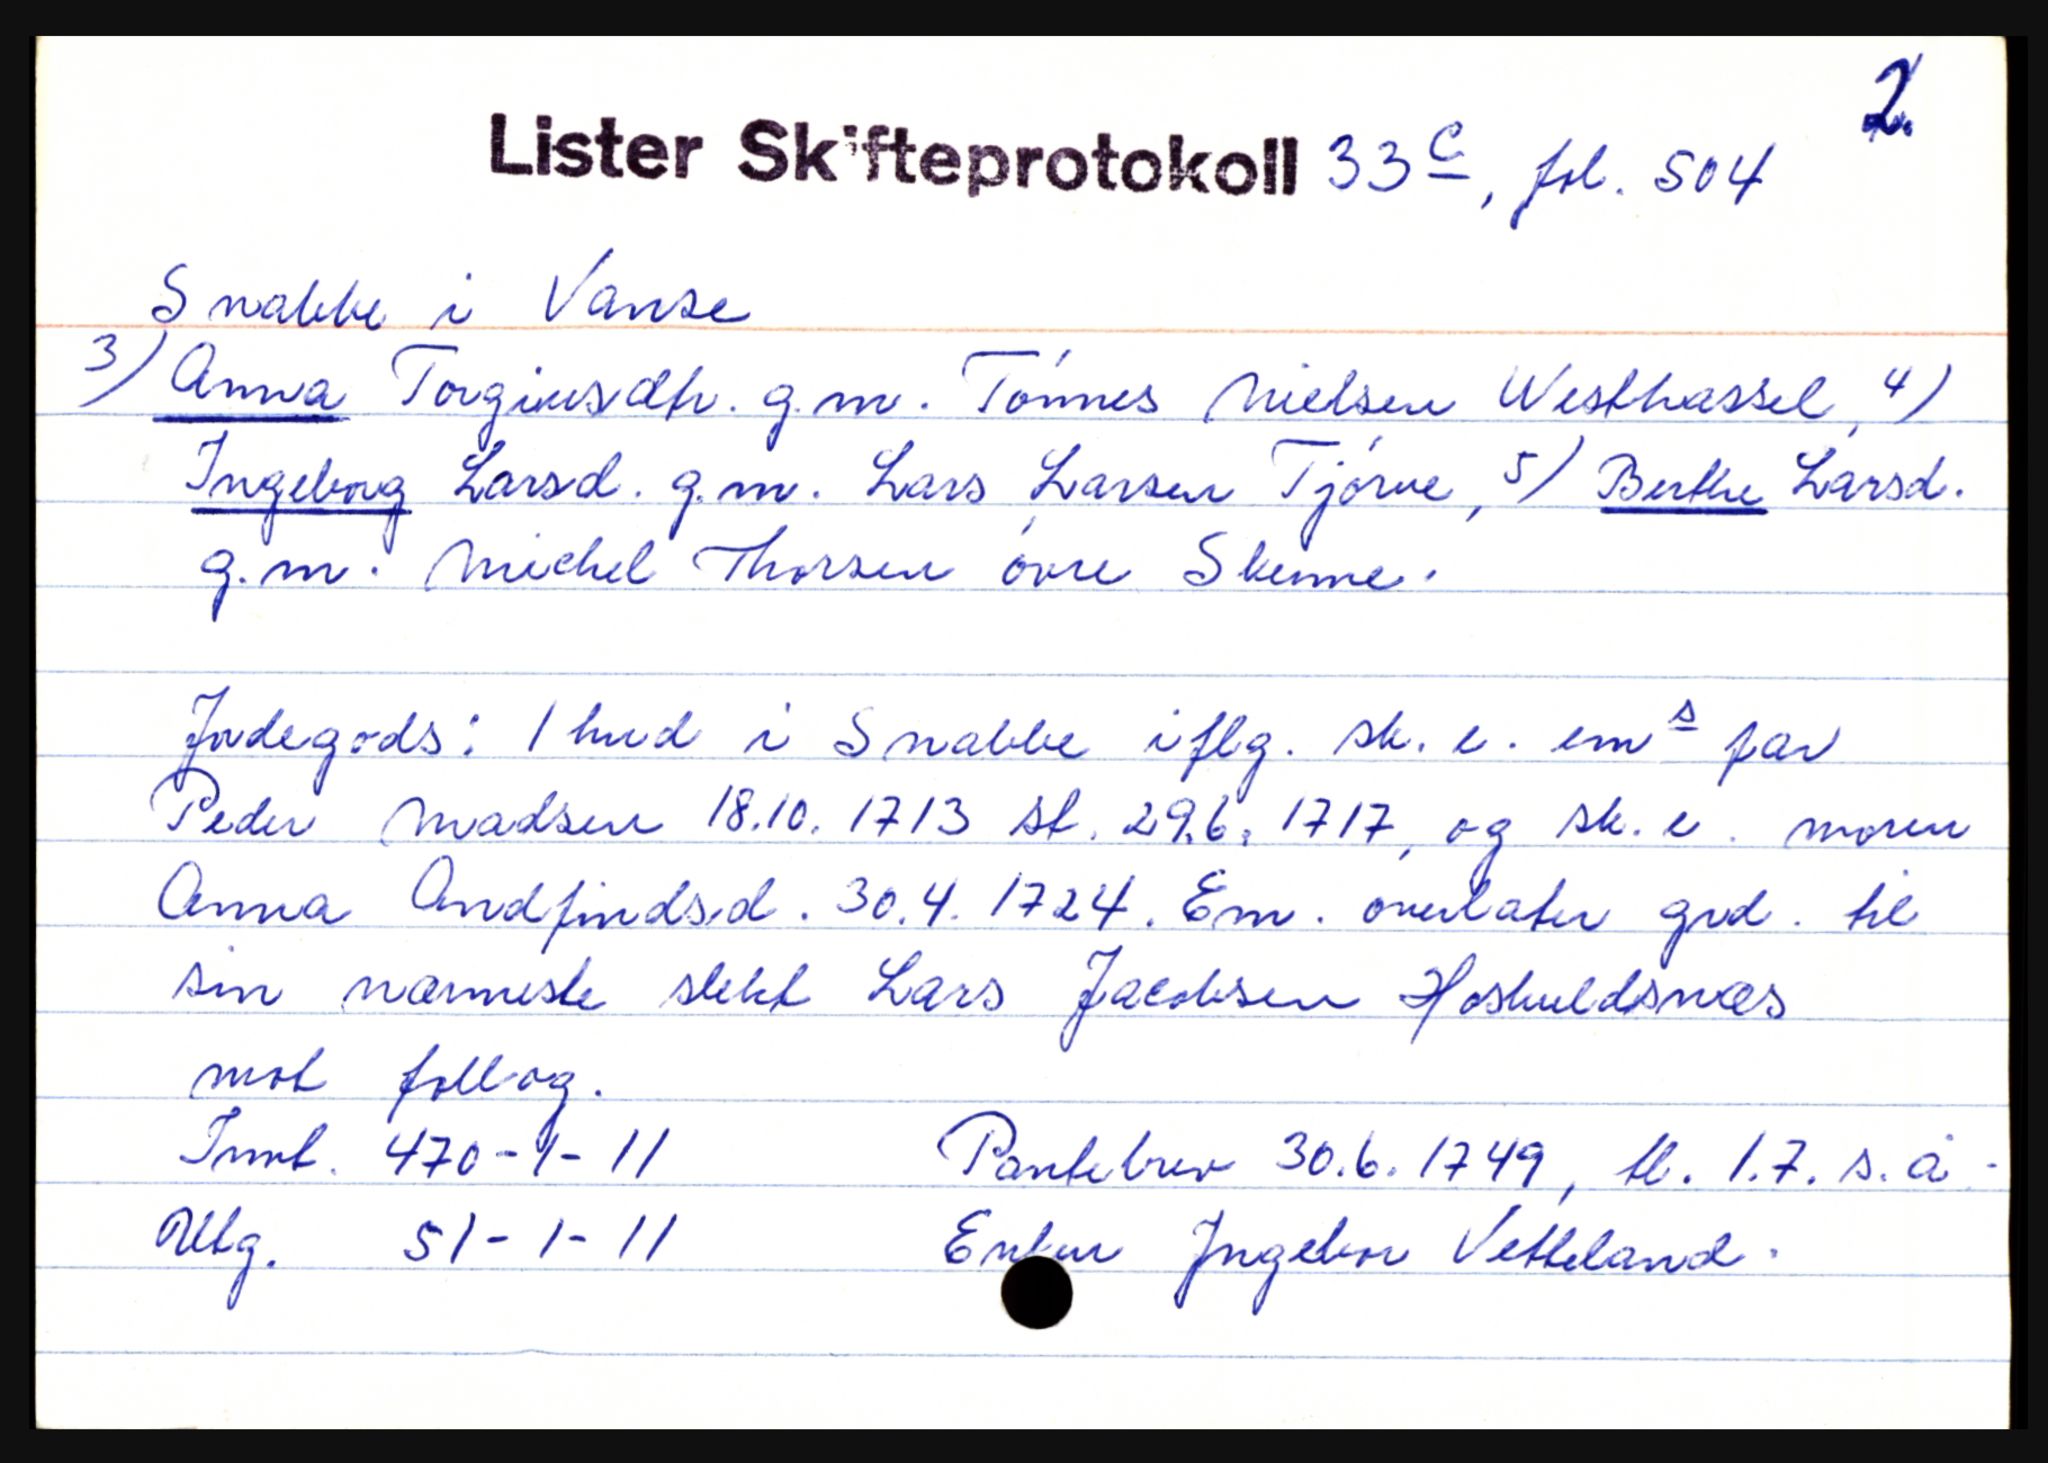 2.
Lister Skifteprotokoll 33c, fol. 504
Snabbe i Vanse
3) Anna Torgiusdtr. g.m. Tønnes Nielsen Westhassel, 4)
Ingeborg Larsd. g.m. Lars Larsen Tjørve, 5) Berthe Larsd.
g.m. Michel Thorsen øvre Skeime.
Jordegods: 1 hud i Snabbe iflg. sk. e. ems far
Peder Madsen 18.10.1713 st. 29.6.1717, og sk. e. moren
Anna Andfindsd. 30.4.1724. Em. overlater grd. til
sin nærmeste slekt Lars Jacobsen Hoskuldsnæs
mot follog.
Innt. 470-1-11 Pantebrev 30.6.1749, tl. 1.7. s.å.
Utg. 51-1-11 Enken Ingebor Vetteland.